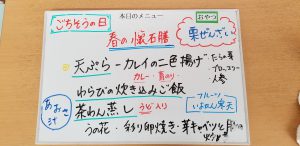 本日のメニュー
ごちそうの日
おやつ
栗ぜんざい
春の懐石膳
天ぷら-カレイの二色揚げ
たらの芽
ブロッコリー
人参
カレー・青のり
わらびの炊き込みご飯
あおさ汁
茶わん蒸し
うど入り
フルーツ
いよかん寒天
うの花・彩り卵焼き・芽キャベツと